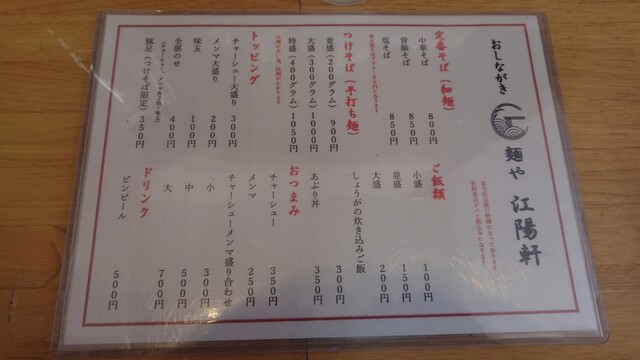 おしながき
麺や 江陽軒
定番そば（細麺）
中華そば 800円
背脂そば 850円
塩そば 850円
つけそば（平打ち麺）
並盛（200グラム）900円
大盛（300グラム）1000円
特盛（400グラム）1050円
トッピング
チャーシュー大盛り 300円
メンマ大盛り 200円
味玉 100円
全部のせ 400円
豚足（つけそば限定）350円
ご飯類
小盛 100円
並盛 150円
大盛 200円
しょうがの炊き込みご飯 300円
あぶり丼 350円
おつまみ
チャーシュー 350円
メンマ 250円
チャーシューメンマ盛り合わせ
小 300円
中 500円
大 700円
ドリンク
ビンビール 500円